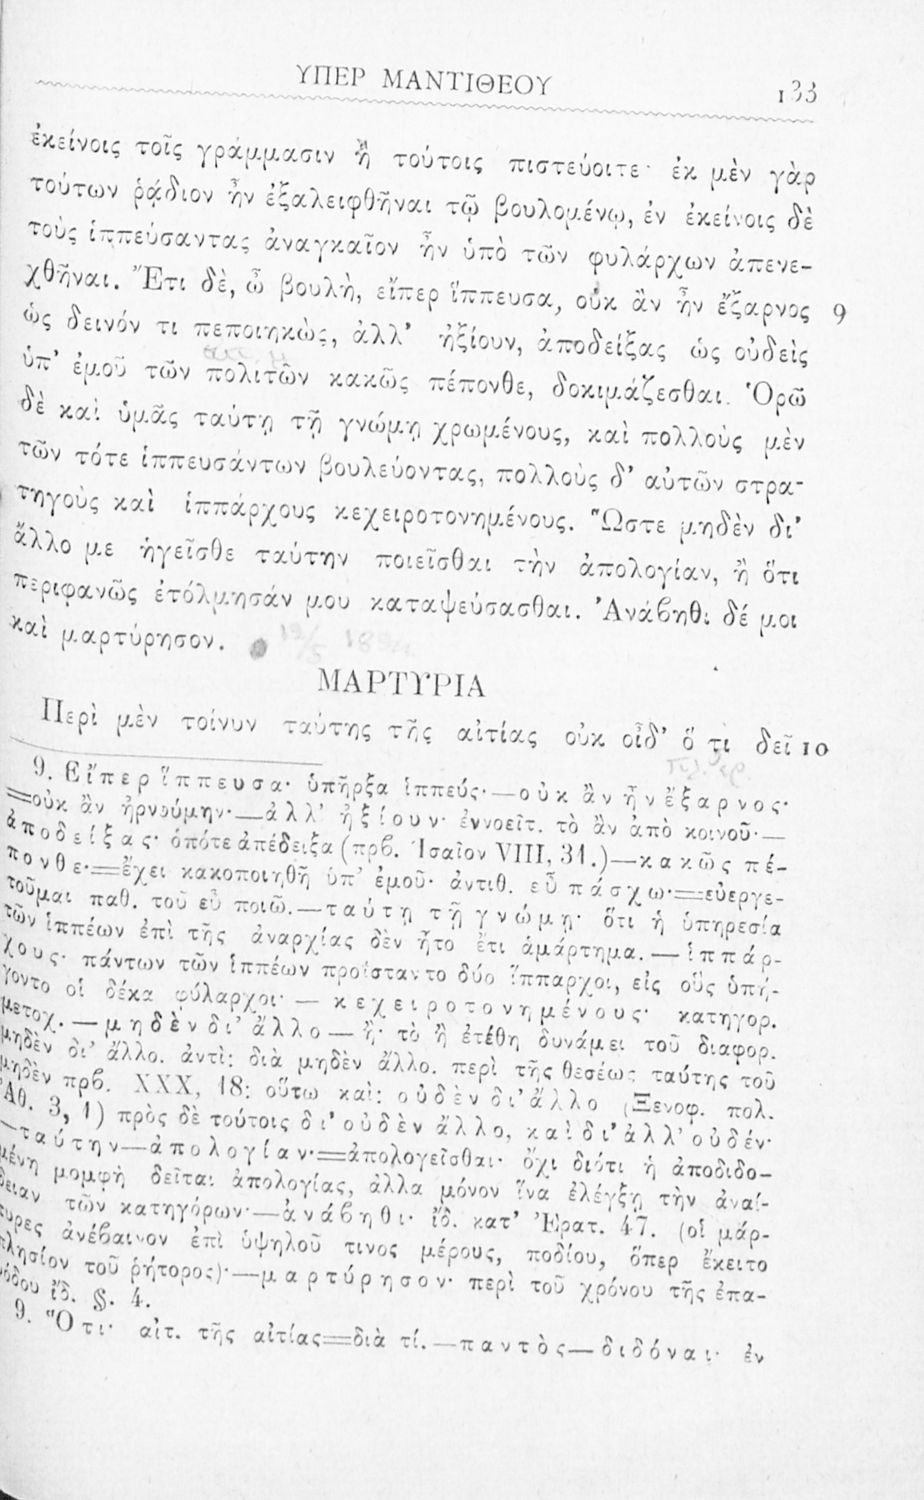 ΥΠΕΡ ΜΑΝΤΙΘΕΟΥ 133
ἐκείνοις τοῖς γράμμασιν ἢ τούτοις πιστεύοιτε· ἐκ μὲν γὰρ
τούτων ῥᾴδιον ἦν ἐξαλειφθῆναι τῷ βουλομένῳ, ἐν ἐκείνοις δὲ
τοὺς ἱππεύσαντας ἀναγκαῖον ἦν ὑπὸ τῶν φυλάρχων ἀπενε-
χθῆναι. Ἔτι δὲ, ὦ βουλὴ, εἴπερ ἵππευσα, οὐκ ἂν ἦν ἔξαρνος 9
ὡς δεινόν τι πεποιηκὼς, ἀλλ' ἠξίουν, ἀποδείξας ὡς οὐδεὶς
ὑπ' ἐμοῦ τῶν πολιτῶν κακῶς πέπονθε, δοκιμάζεσθαι. Ὁρῶ
δὲ καὶ ὑμᾶς ταύτῃ τῇ γνώμῃ χρωμένους, καὶ πολλοὺς μὲν
τῶν τότε ἱππευσάντων βουλεύοντας, πολλοὺς δ' αὐτῶν στρα-
τηγοὺς καὶ ἱππάρχους κεχειροτονημένους. Ὥστε μηδὲν δι'
ἄλλο με ἡγεῖσθε ταύτην ποιεῖσθαι τὴν ἀπολογίαν, ἢ ὅτι
περιφανῶς ἐτόλμησάν μου καταψεύσασθαι. Ἀνάβηθι δέ μοι
καὶ μαρτύρησον.
19/5 1894
ΜΑΡΤΥΡΙΑ
Περὶ μὲν τοίνυν ταύτης τῆς αἰτίας οὐκ οἶδ' ὅ τι δεῖ 10
9. Εἴπερ ἵππευσα· ὑπῆρξα ἱππεύς·—οὐκ ἂν ἦν ἔξαρνος·
=οὐκ ἂν ἠρνούμην·—ἀλλ' ἠξίουν· ἐννοεῖτ. τὸ ἂν ἀπὸ κοινοῦ·—
ἀποδείξας· ὁπότε ἀπέδειξα (πρβ. Ἰσαῖον VIII, 31.)—κακῶς πέ-
πονθε·=ἔχει κακοποιηθῆ ὑπ' ἐμοῦ· ἀντιθ. εὖ πάσχω·=εὐεργε-
τοῦμαι παθ. τοῦ εὖ ποιῶ.—ταύτῃ τῇ γνώμῃ· ὅτι ἡ ὑπηρεσία
τῶν ἱππέων ἐπὶ τῆς ἀναρχίας δὲν ἦτο ἔτι ἁμάρτημα.—ἱππάρ-
χους· πάντων τῶν ἱππέων προΐσταντο δύο ἵππαρχοι, εἰς οὓς ὑπή-
γοντο οἱ δέκα φύλαρχοι·—κεχειροτονημένους· κατηγορ.
μετοχ.—μηδὲν δι' ἄλλο—ἤ· τὸ ἢ ἐτέθη δυνάμει τοῦ διαφορ.
μηδὲν δι' ἄλλο. ἀντὶ: διὰ μηδὲν ἄλλο. περὶ τῆς θεσέως ταύτης τοῦ
μηδὲν πρβ. XXX, 18: οὕτω καὶ: οὐδὲν δι' ἄλλο (Ξενοφ. πολ.
Ἀθ. 3, 1) πρὸς δὲ τούτοις δι' οὐδὲν ἄλλο, καὶ δι' ἀλλ' οὐδέν·
—ταύτην—ἀπολογίαν·=ἀπολογεῖσθαι· ὄχι διότι ἡ ἀποδιδο-
μένη μομφὴ δεῖται ἀπολογίας, ἀλλα μόνον ἵνα ἐλέγξῃ τὴν ἀναί-
δειαν τῶν κατηγόρων·—ἀνάβηθι· ἴδ. κατ' Ἐρατ. 47. (οἱ μάρ-
τυρες ἀνέβαινον ἐπὶ ὑψηλοῦ τινος μέρους, ποδίου, ὅπερ ἔκειτο
πλησίον τοῦ ῥήτορος)·—μαρτύρησον· περὶ τοῦ χρόνου τῆς ἐπα-
νόδου ἴδ. §. 4.
9. Ὅτι· αἰτ. τῆς αἰτίας=διὰ τί.—παντὸς—διδόναι· ἐν